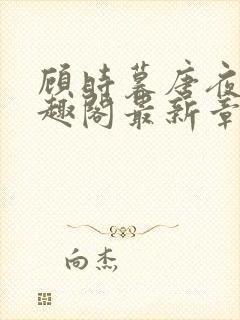 顾时暮唐夜
趣阁最新章
向杰